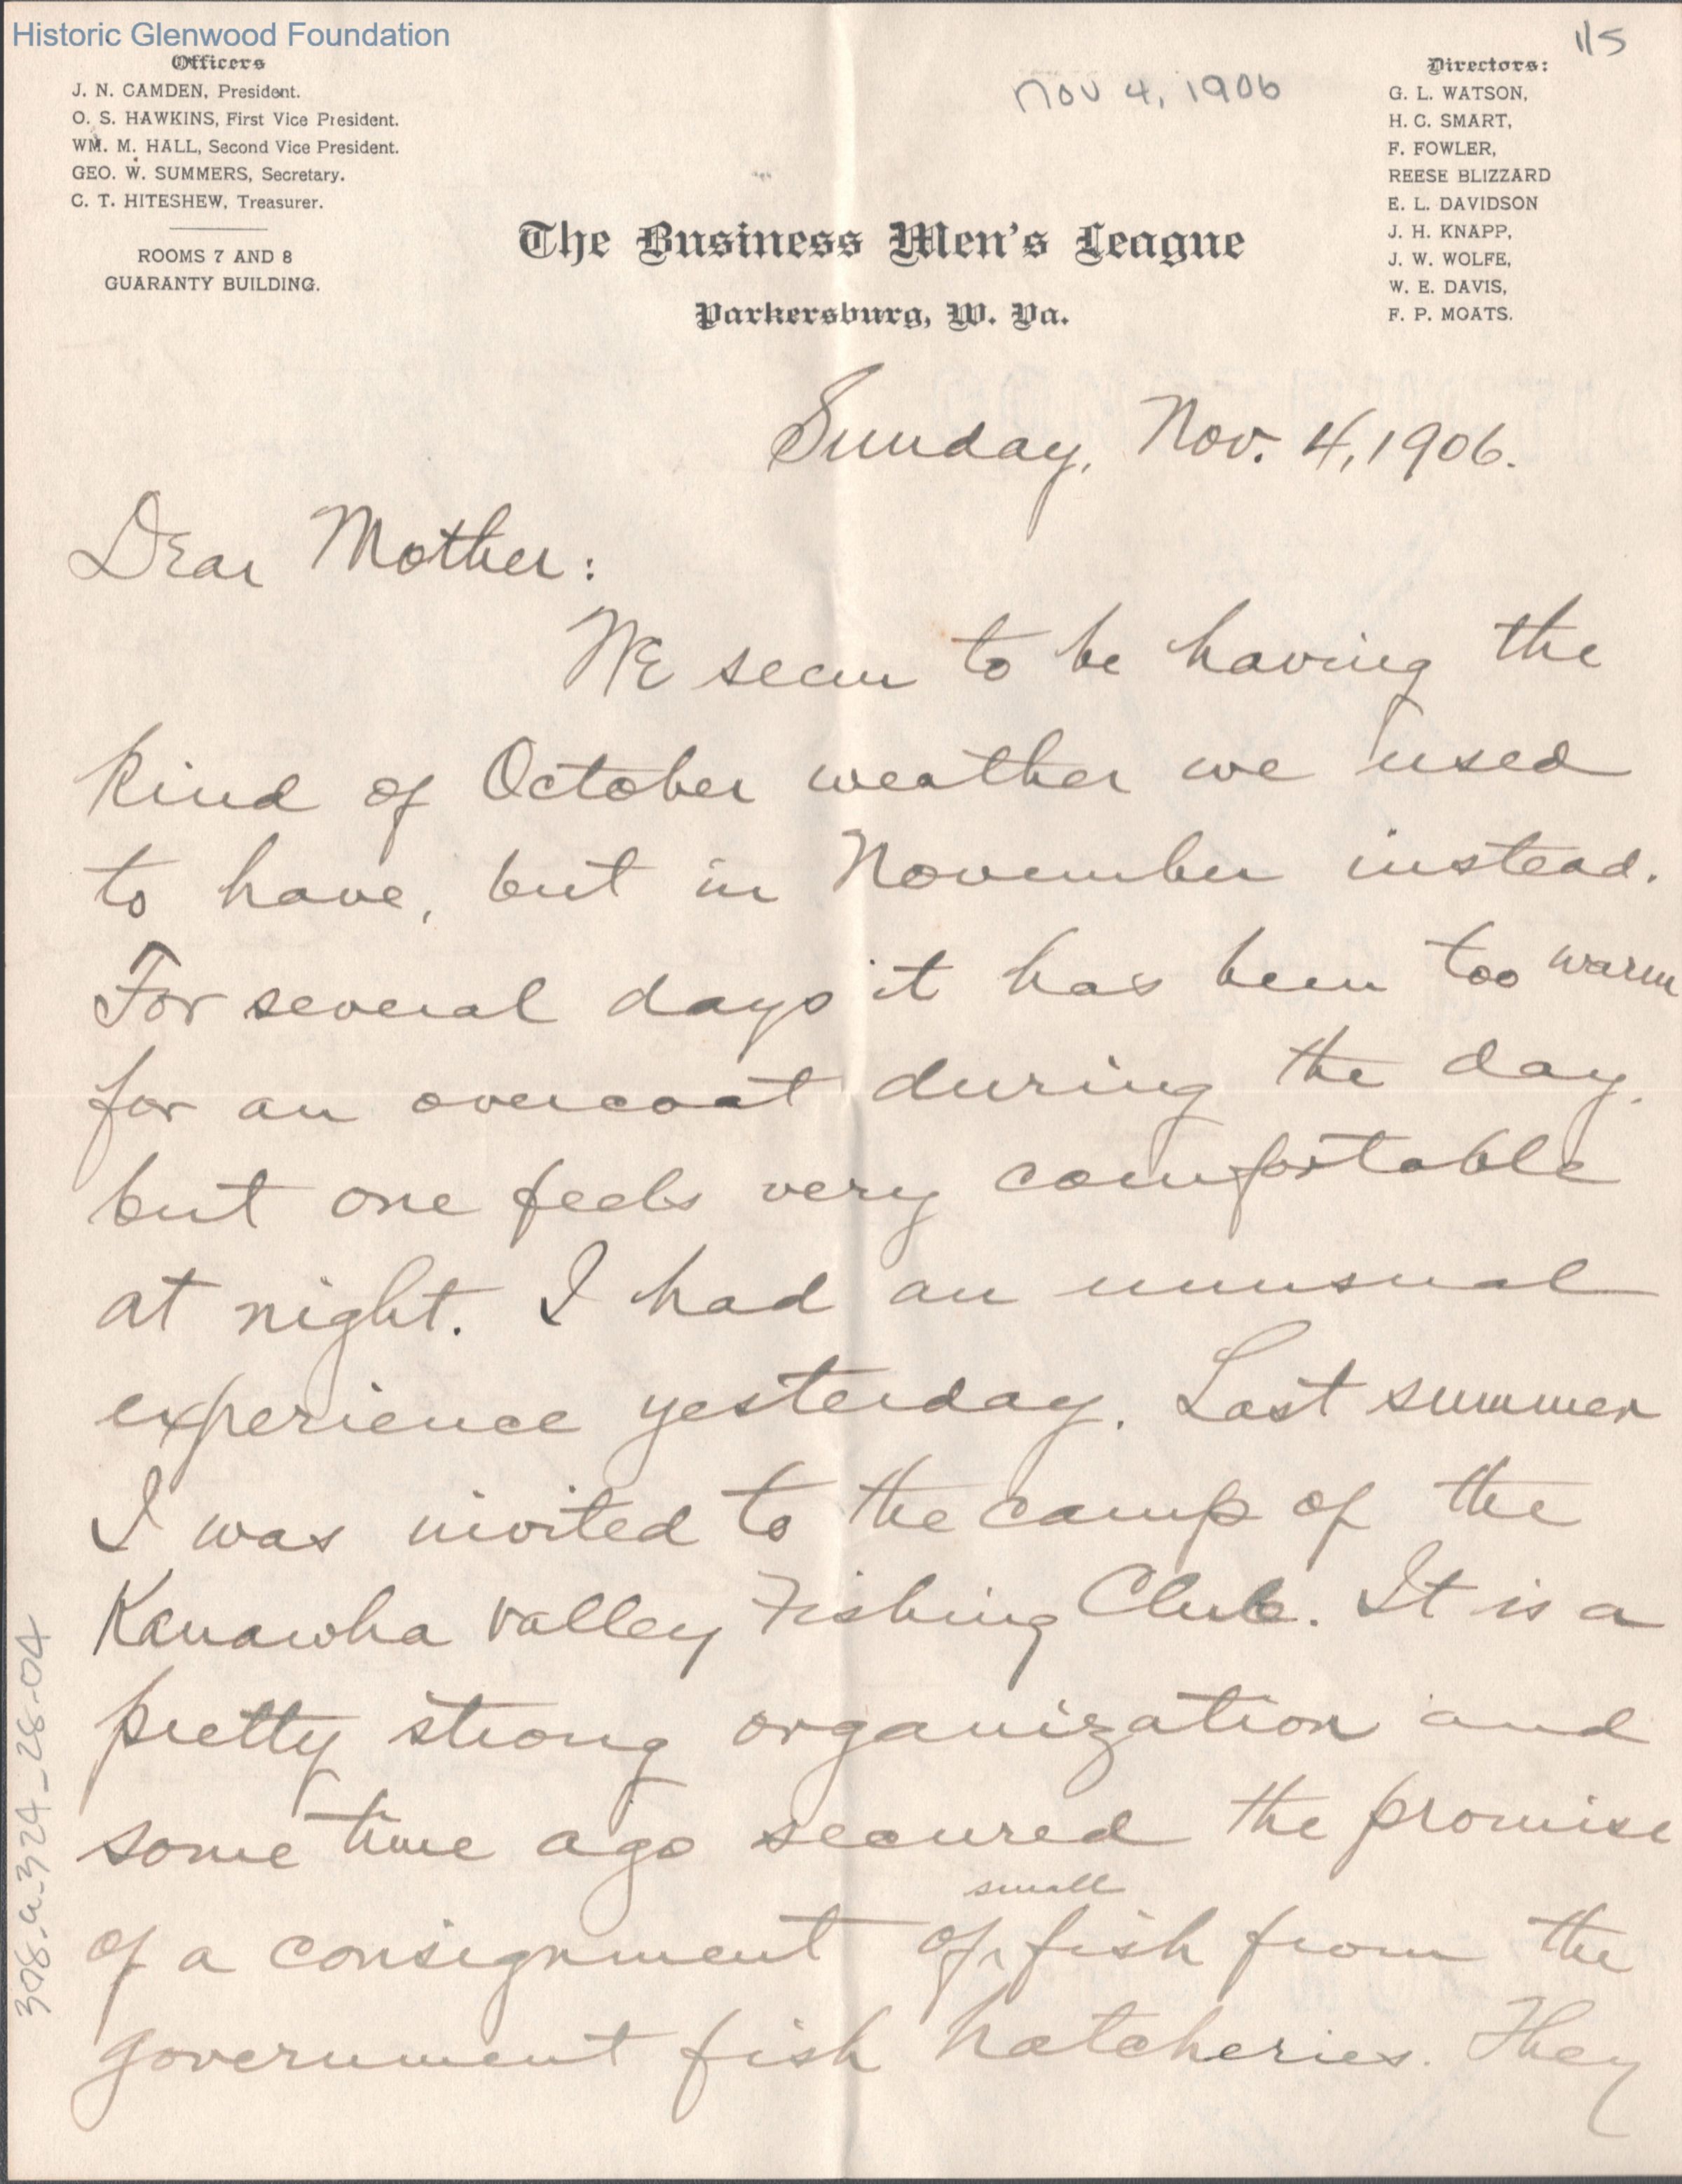 Historic Glenwood Foundation
1/5
Officers
J. N. CAMDEN, President.
O. S. HAWKINS, First Vice President.
WM. M. HALL, Second Vice President.
GEO. W. SUMMERS, Secretary.
C. T. HITESHEW, Treasurer.
ROOMS 7 AND 8
GUARANTY BUILDING.
Nov 4, 1906
Directors:
G. L. WATSON,
H. C. SMART,
F. FOWLER,
REESE BLIZZARD
E. L. DAVIDSON
J. H. KNAPP,
J. W. WOLFE,
W. E. DAVIS,
F. P. MOATS.
The Business Men's League
Parkersburg, W. Va.
Sunday, Nov. 4, 1906.
Dear Mother:
We seem to be having the
kind of October weather we used
to have, but in November instead.
For several days it has been too warm
for an overcoat during the day,
but one feels very comfortable
at night. I had an unusual
experience yesterday. Last summer
I was invited to the camp of the
Kanawha Valley Fishing Club. It is a
pretty strong organization and
some time ago secured the promise
of a consignment of small fish from the
government fish hatcheries. They
308-a-324-28-04